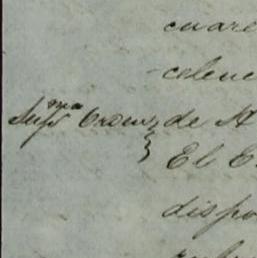 cuare
celenc
Supr ma Orden de A
El E
dispo